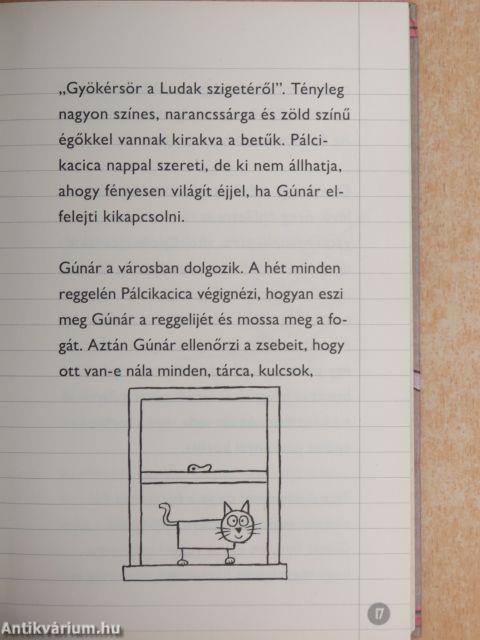 „Gyökérsör a Ludak szigetéről”. Tényleg
nagyon színes, narancssárga és zöld színű
égőkkel vannak kirakva a betűk. Pálci-
kacica nappal szereti, de ki nem állhatja,
ahogy fényesen világít éjjel, ha Gúnár el-
felejti kikapcsolni.
Gúnár a városban dolgozik. A hét minden
reggelén Pálcikacica végignézi, hogyan eszi
meg Gúnár a reggelijét és mossa meg a fo-
gát. Aztán Gúnár ellenőrzi a zsebeit, hogy
ott van-e nála minden, tárca, kulcsok,
17
Antikvárium.hu